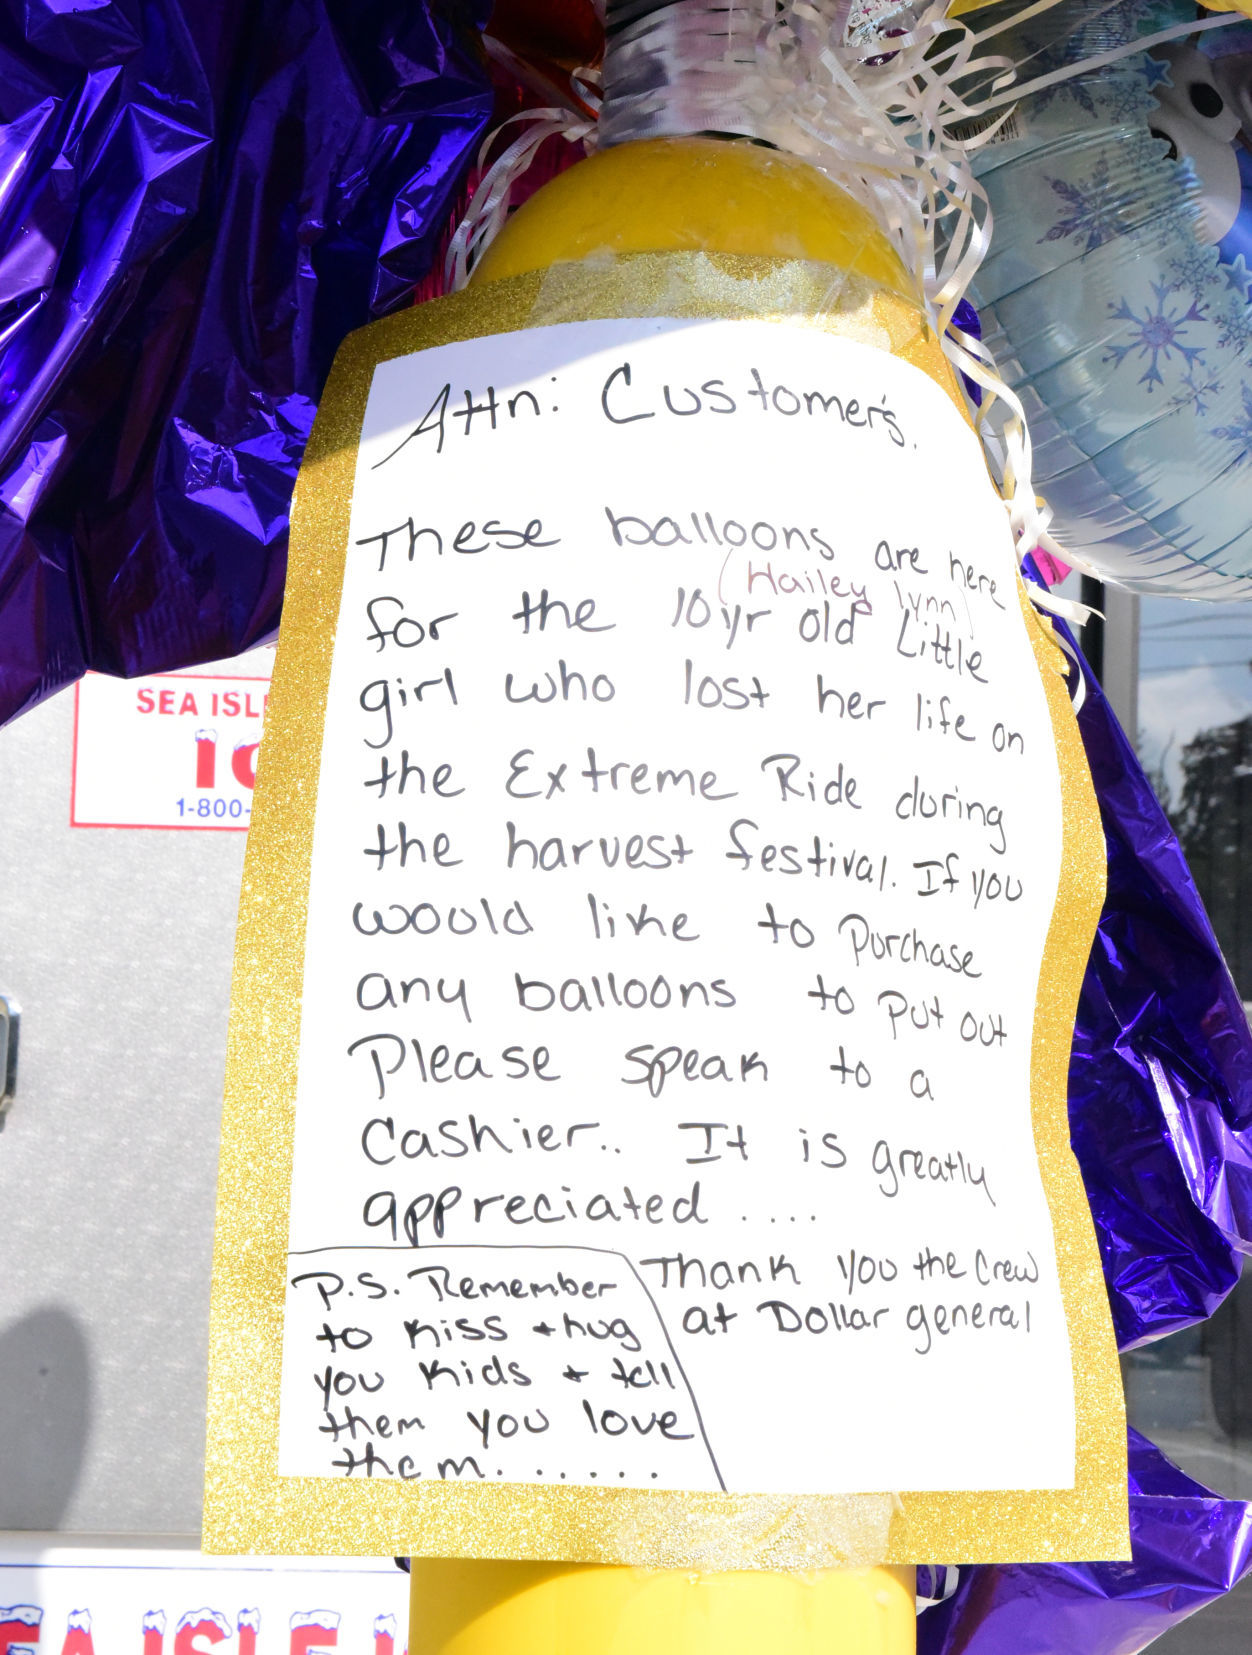 Attn: Customer's.
These balloons are here
(Hailey lynn)
for the 10yr old Little
girl who lost her life on
the Extreme Ride during
the harvest festival. If you
would like to Purchase
any balloons to Put out
Please speak to a
Cashier.. It is greatly
appreciated ....
Thank you the Crew
at Dollar general
P.S. Remember
to kiss + hug
you kids + tell
them you love
them.......
SEA ISL
IC
1-800-
EA ISLE I